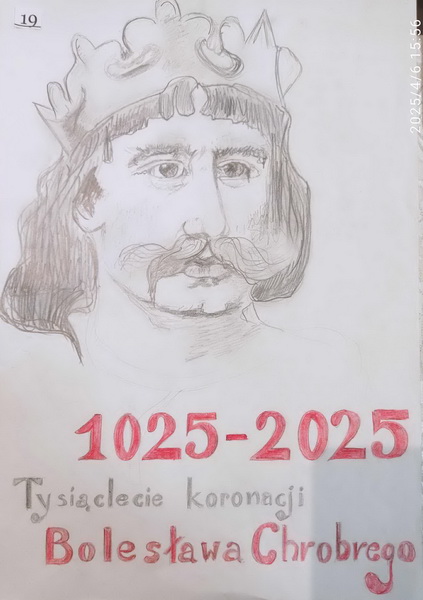 19
2025/4/6 15:56
1025-2025
Tysiąclecie koronacji
Bolesława Chrobrego